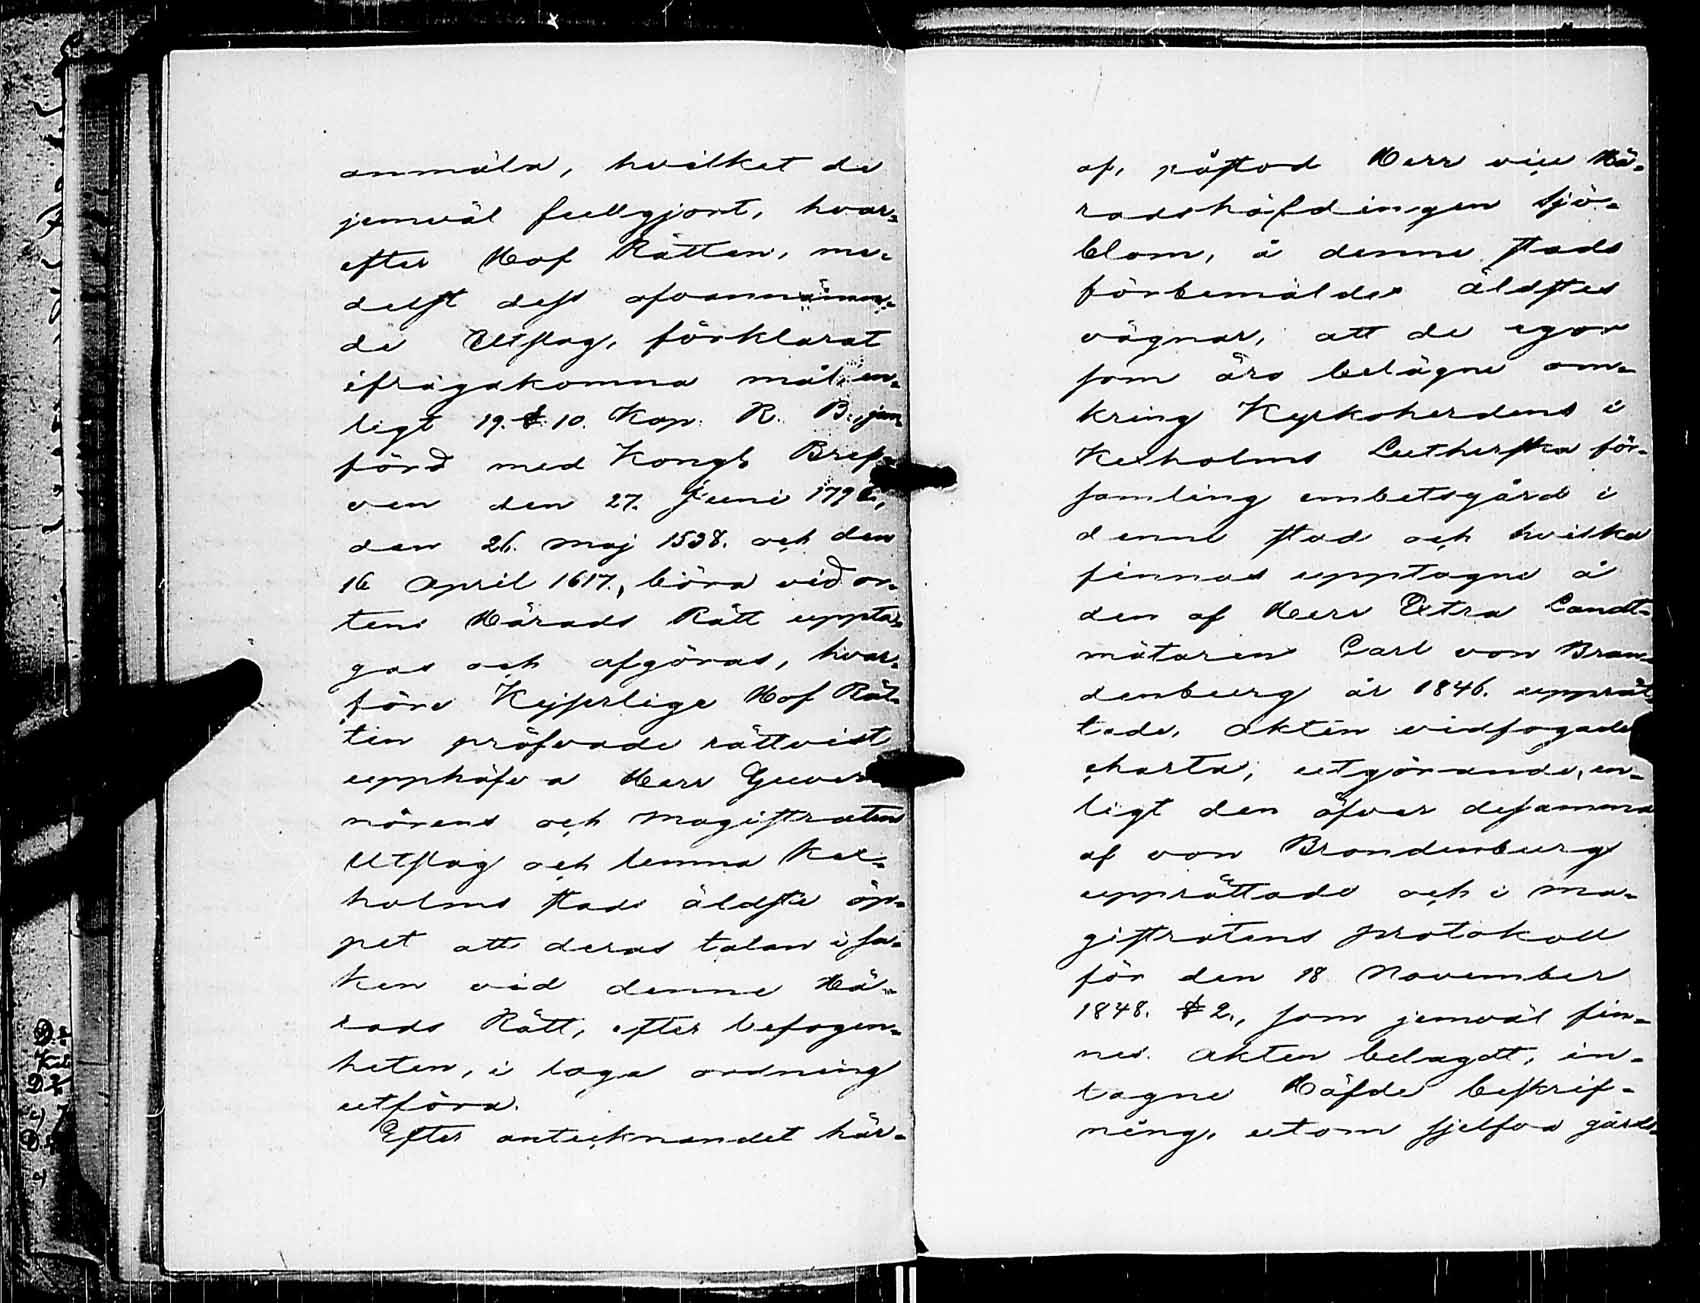 anmäla, hvilket de
jemväl fullgjort, hvar-
efter Hof Rätten, me-
delst dess ofvannämn-
de Utslag, förklarat
ifrågakomna mål, en-
ligt 19. §. 10. Kap. R. B. jem-
förd med Kongl. Bref-
ven den 27. Juni
den 26. Maj 1538. och den
16 April 1617., böra vid or-
tens Härads Rätt uppta-
gas och afgöras, hvar-
före Kejserlige Hof Rät-
ten pröfvade rättvist
upphäfva Herr Guver-
nörens och Magistratens
Utslag och lemna Kex-
holms stads äldste öp-
pet att deras talan i sa-
ken vid denne Hä-
rads Rätt, efter befogen-
heten, i laga ordning
utföra.
Efter antecknandet här-
af, påstod Herr vice Hä-
radshöfdingen Sjö-
blom, å denne stads
förbemälde äldstes
vägnar, att de egor
som äro belägne om-
kring Kyrkoherdens i
Kexholms Lutherska för-
samling embetsgård i
denne stad och hvilka
finnas upptagne å
den af Herr Extra Landt-
mätaren Carl von Bran-
denburg år 1846. upprät-
tade, akten vidfogade
charta, utgörande, en-
ligt den öfver desamma
af von Brandenburg
upprättade och i Ma-
gistratens protokoll
för den 18 November
1848. § 2., som jemväl fin-
nes akten belagdt, in-
tagne Häfde beskrif-
ning, utom sjelfva gårds-
D:r
Kex
D:r
4
D:r
4